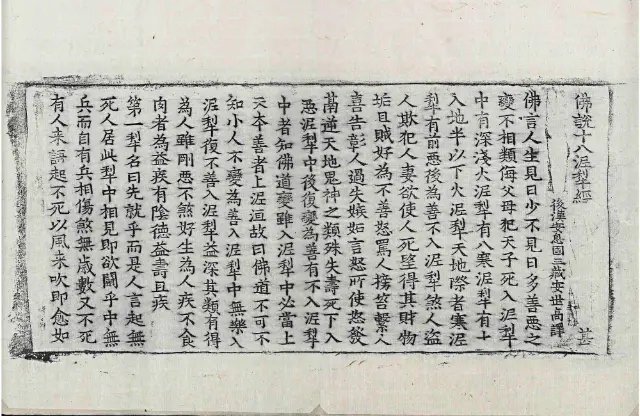 佛說十八泥犁經
後漢安息國三藏安世高譯
甚
佛言人生見日少不見日多善惡之
變不相類侮父母犯天子死入泥犁
中有深淺火泥犁有八寒泥犁有十
入地半以下火泥犁天地際者寒泥
犁有前惡後為善不入泥犁煞人盜
人欺犯人妻欲使人死望得其財物
妬且賊好為不善怒罵人搒笞繫人
喜告彰人過失嫉如言怒所使怒發
萬逆天地思神之類殊失壽死下入
惡泥犁中後復變為善有不入泥犁
中者知佛道變雖入泥犁中必當上
天本善者上泥洹故曰佛道不可不
知小人不變為善入泥犁中無樂入
泥犁復不善入泥犁益深其類有得
為人雖剛惡不煞好生為人疾不食
肉者為益疾有陰德益壽且疾
第一犁名曰先就乎而是人言起無
死人居此犁中相見即欲鬪乎中無
兵而自有兵相傷煞無歲數又不死
有人来語起不死以風来吹即愈如